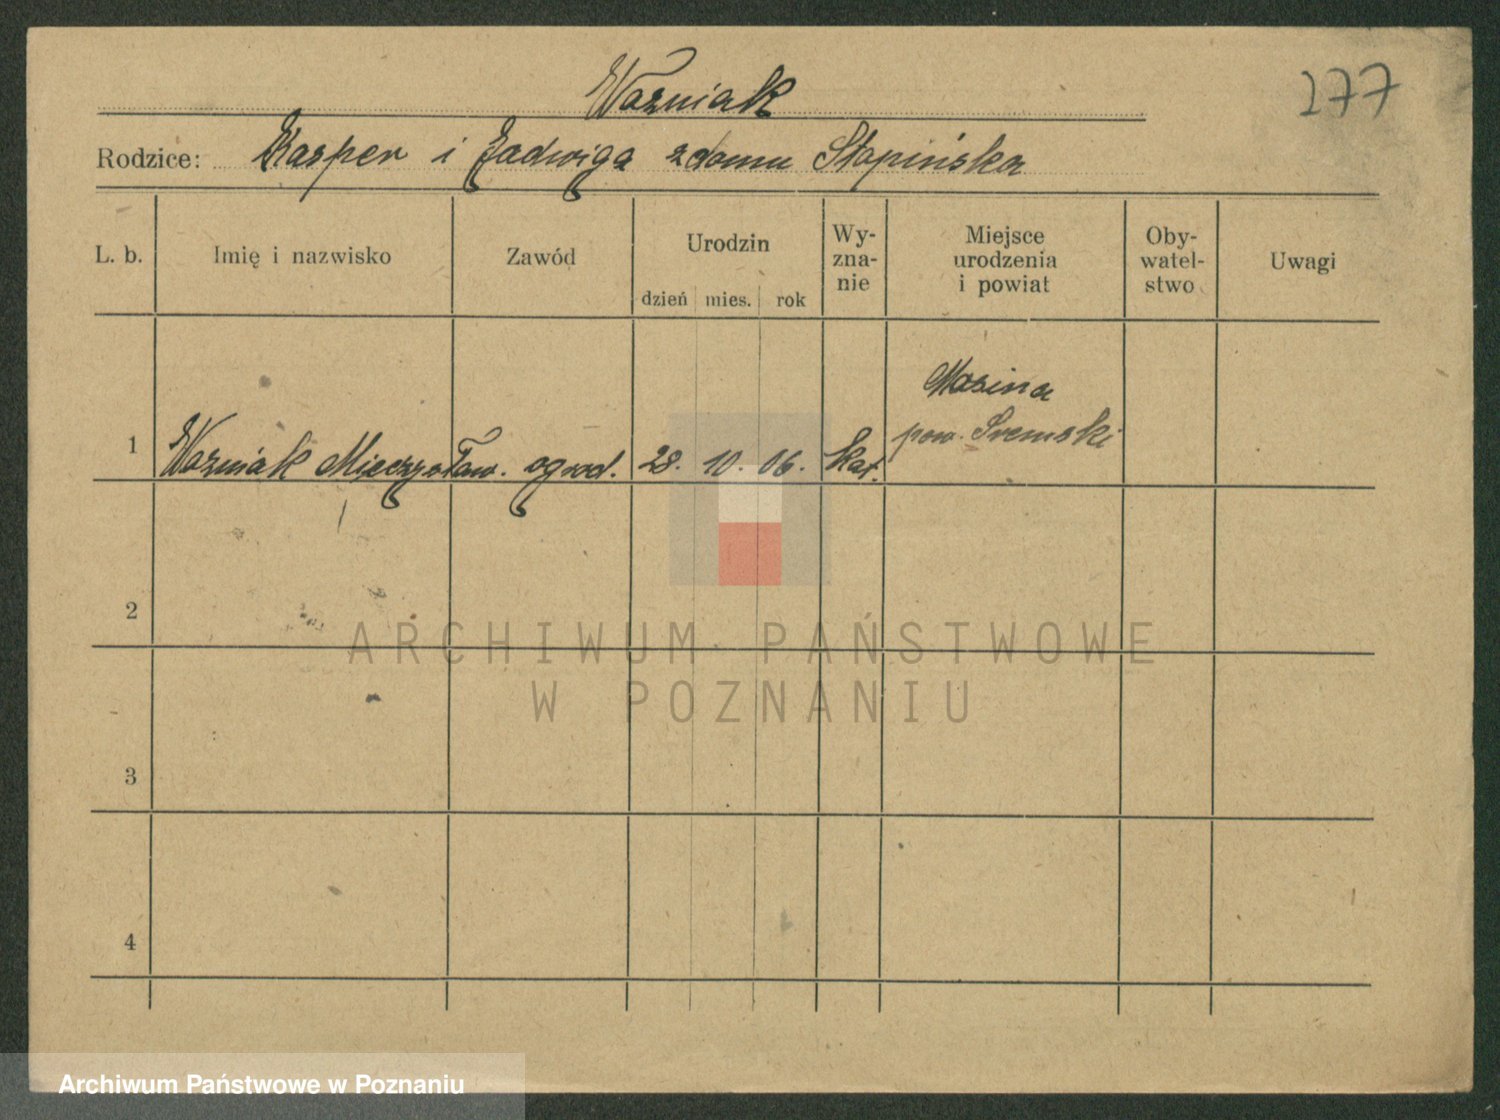 Wozniak
277
Rodzice: Kasper i Jadwiga z domu Stopińska
L. b.
Imię i nazwisko
Zawód
Urodzin
dzień mies. rok
Wy-
zna-
nie
Miejsce
urodzenia
i powiat
Oby-
watel-
stwo
Uwagi
1
Wozniak Mieczysław. ogrod. 28. 10. 06. Kat.
Mosina
pow. Sremski
2
3
4
ARCHIWUM PAŃSTWOWE
W POZNANIU
Archiwum Państwowe w Poznaniu